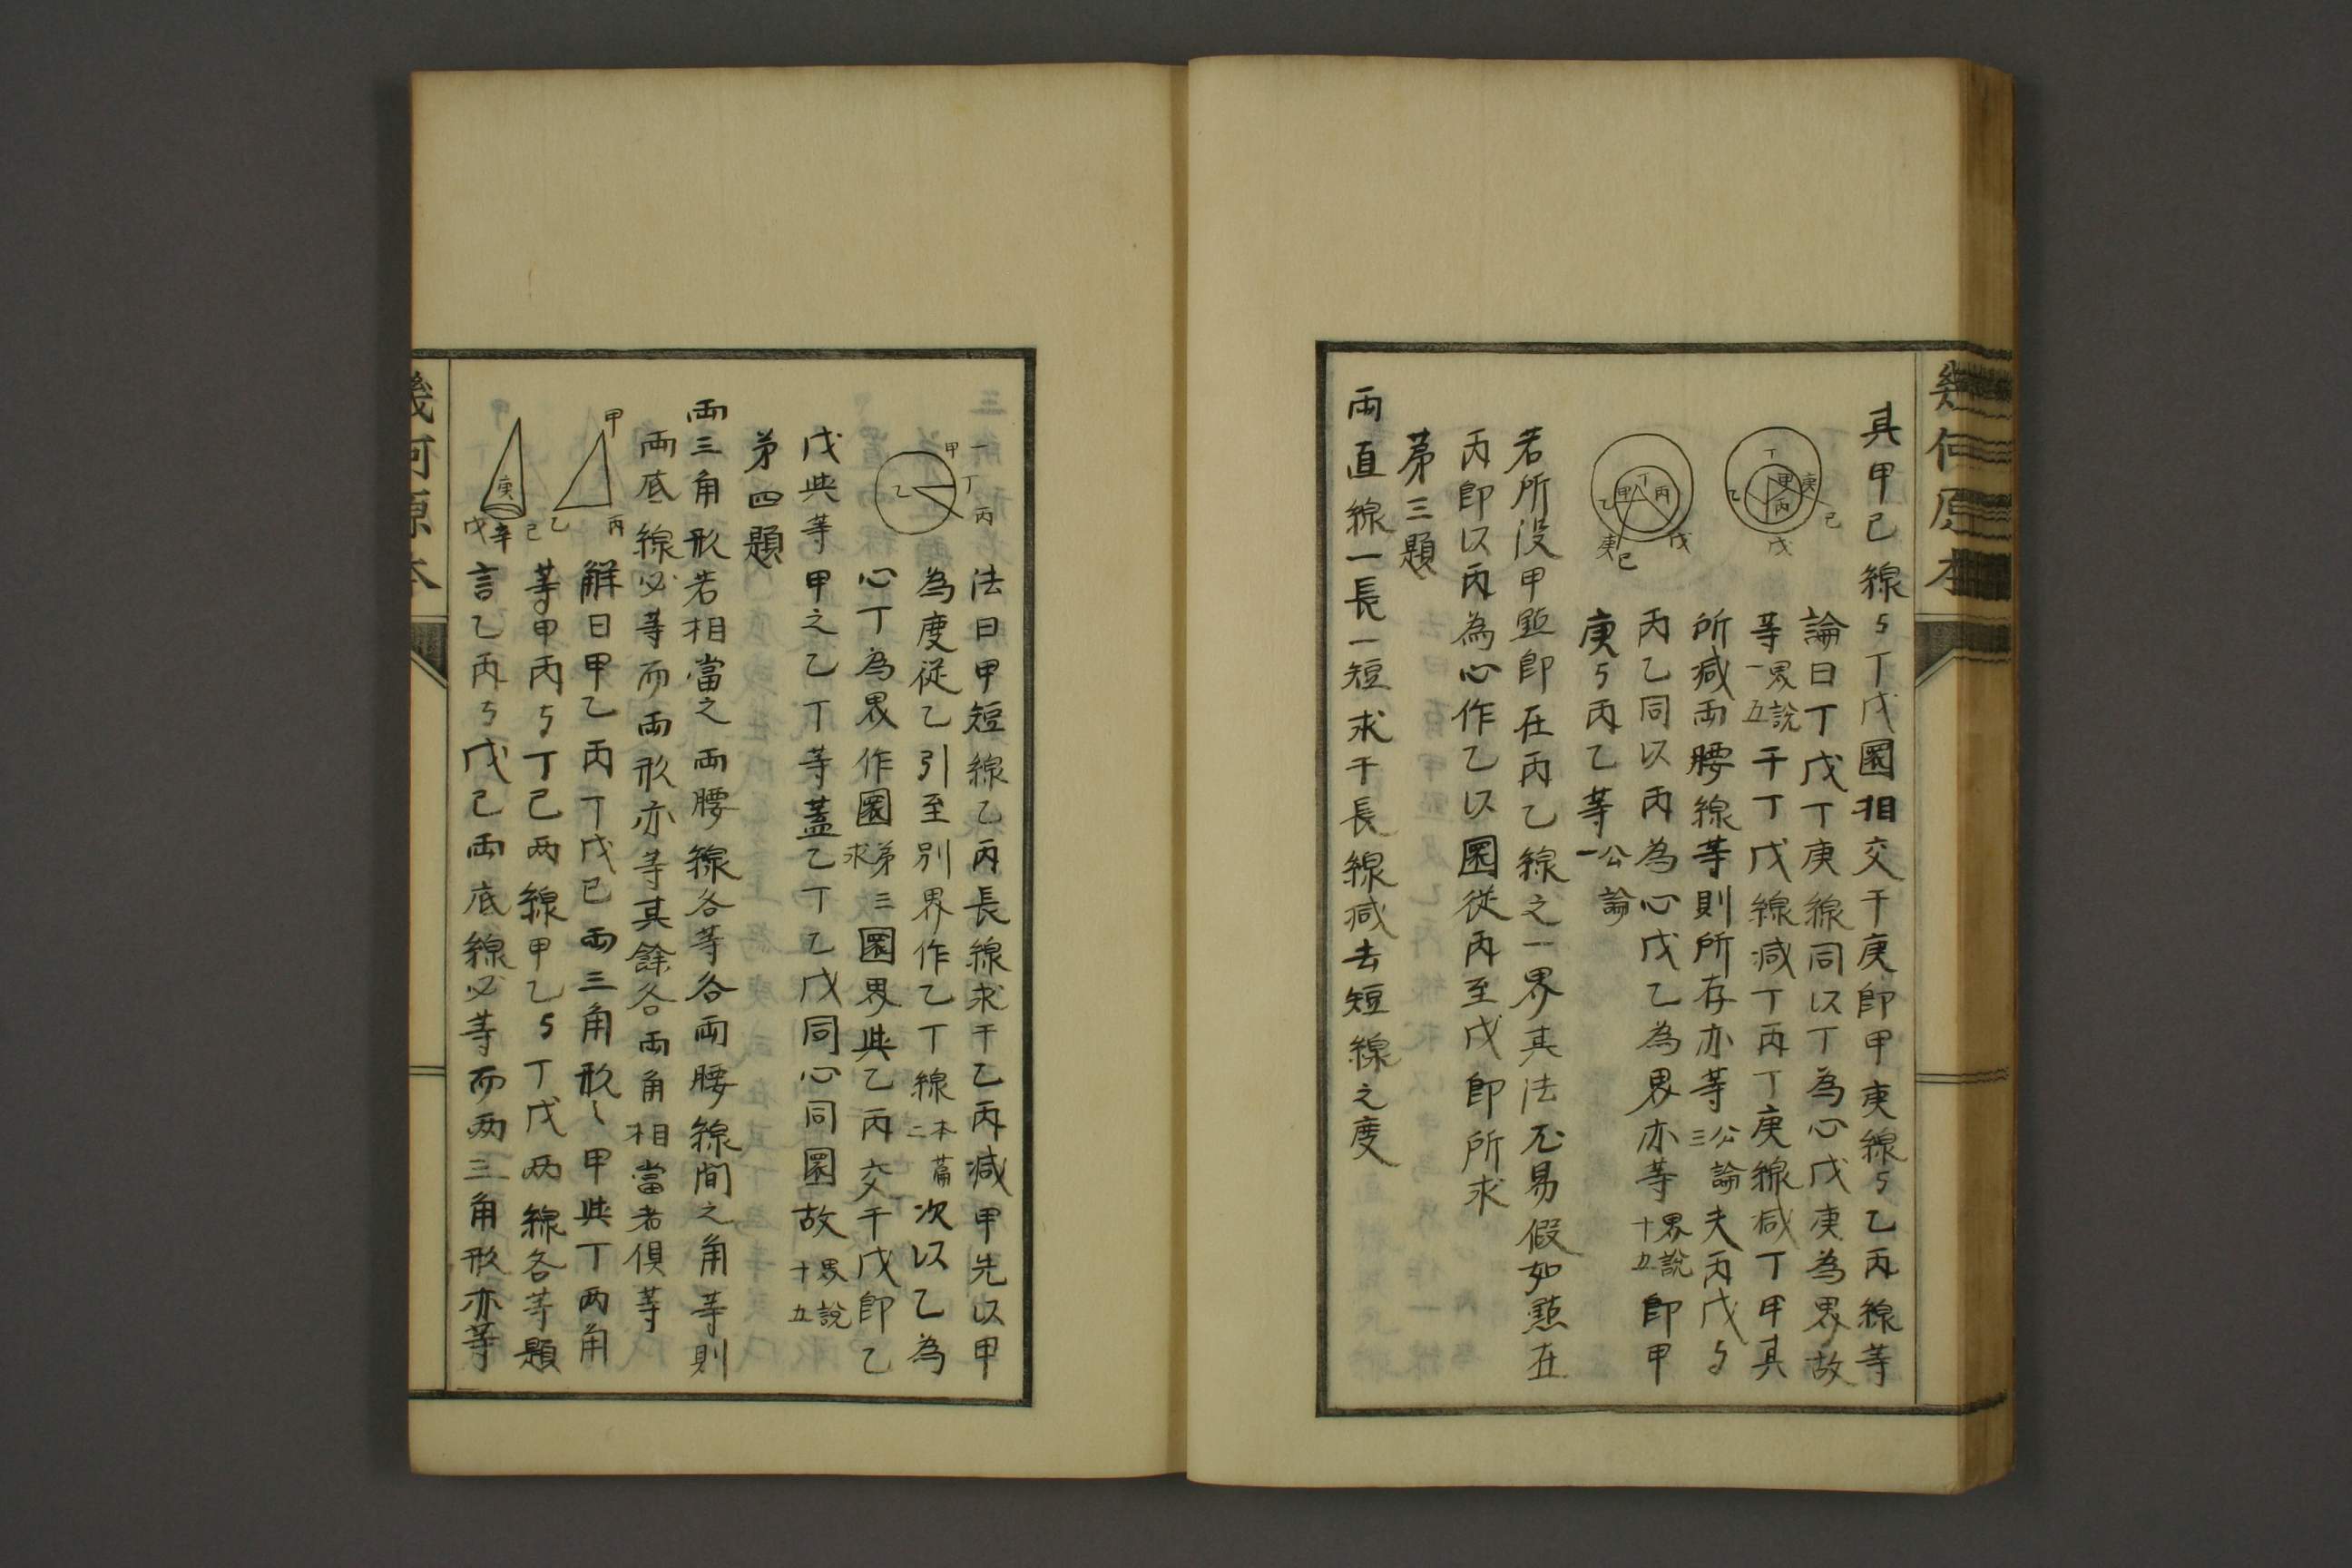 幾何原本
其甲己線与丁戊圜相交于庚即甲庚線与乙丙線等
丁 甲 庚 乙 丙 己 戊
論曰丁戊丁庚線同以丁為心戊庚為界故
等界說一五于丁戊線减丁丙丁庚線减丁甲其
所减兩腰線等則所存亦等公論三夫丙戊与
丁 甲 丙 乙 戊 庚 己
丙乙同以丙為心戊乙為界亦等界說十五即甲
庚与丙乙等公論一
若所設甲㸃即在丙乙線之一界其法尤易假如㸃在
丙即以丙為心作乙以圜從丙至戊即所求
苐三題
兩直線一長一短求于長線减去短線之度
甲 一 丁 乙 丙
法曰甲短線乙丙長線求于乙丙减甲先以甲
為度從乙引至別界作乙丁線本篇二次以乙為
心丁為界作圜苐三求圜界與乙丙交于戊即乙
戊與等甲之乙丁等蓋乙丁乙戊同心同圜故界說十五
苐四題
兩三角形若相當之兩腰線各等各兩腰線間之角等則
兩底線必等而兩形亦等其餘各兩角相當者俱等
甲 乙 丙
解曰甲乙丙丁戊己兩三角形〻甲與丁兩角
等甲丙与丁己两線甲乙与丁戊两線各等題
庚 戊 辛 己
言乙丙与戊己兩底線必等而两三角形亦等
幾何原本